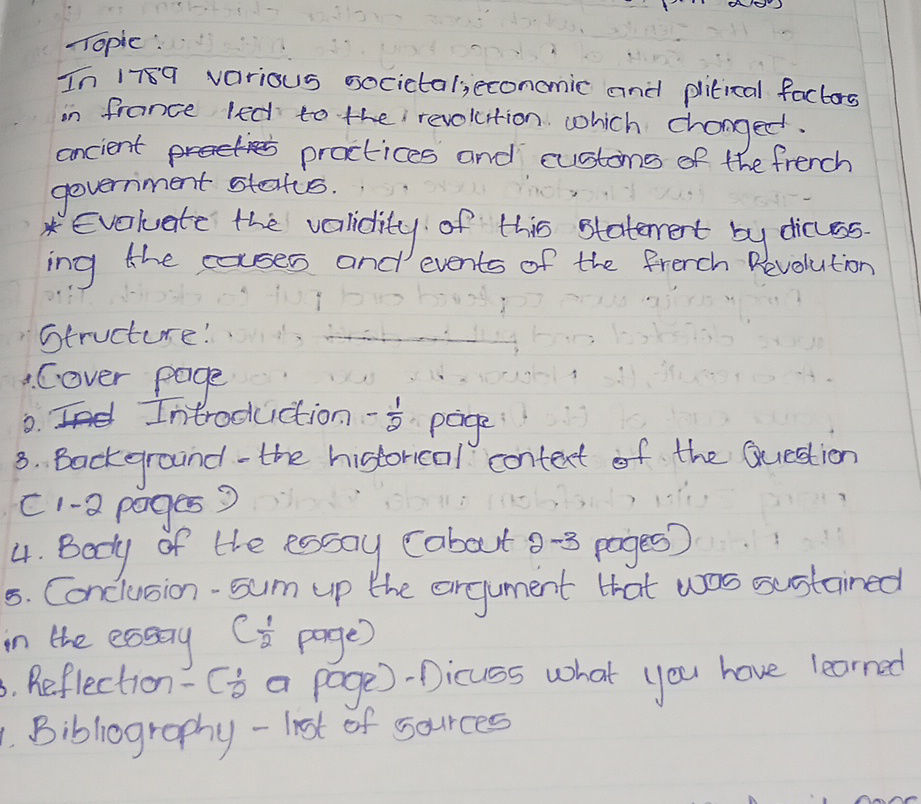 Topic:
In 1789 various societal, economic and plitical factors
in france led to the revolution which changed.
ancient practies practices and customs of the french
government status.
* Evaluate the validity of this statement by dicuss-
ing the causes and events of the french Revolution
Structure:
1. Cover page
2. Ind Introduction - 1/2 page
3. Background - the historical context of the Question
(1-2 pages)
4. Body of the essay (about 2-3 pages)
5. Conclusion - sum up the argument that was sustained
in the essay (1/2 page)
. Reflection - (1/2 a page) - Dicuss what you have learned
. Bibliography - list of sources